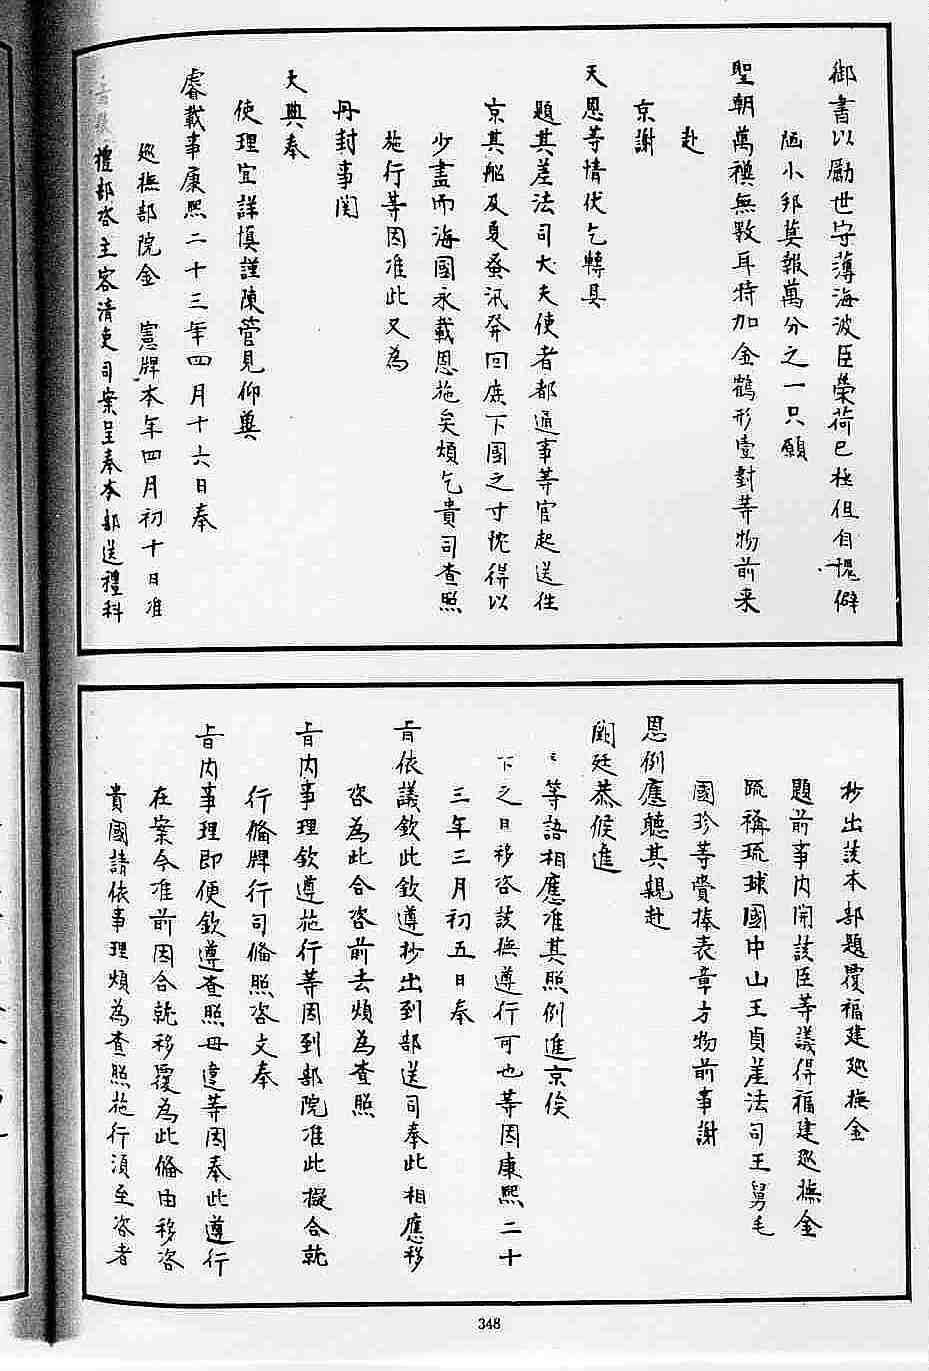 御書以勵世守薄海波臣榮荷已極但自愧僻
陋小邦莫報萬分之一只願
聖朝萬禩無斁耳特加金鶴形壹對等物前來
赴
京謝
天恩等情伏乞轉具
題其差法司大夫使者都通事等官起送往
京其船及夏蚤汛發回庶下國之寸忱得以
少盡而海國永載恩施矣煩乞貴司查照
施行等因准此又為
丹封事関
大典奉
使理宜詳慎謹陳管見仰兾
睿載事康熙二十三年四月十六日奉
廵撫部院金 憲牌本年四月初十日准
禮部咨主客清吏司案呈奉本部送禮科
抄出該本部題覆福建廵撫金
題前事內開該臣等議得福建廵撫金
疏稱琉球國中山王貞差法司王舅毛
國珍等賫捧表章方物前事謝
恩例應聽其親赴
闕廷恭候進
止等語相應准其照例進京俟
下之日移咨該撫遵行可也等因康熙二十
三年三月初五日奉
旨依議欽此欽遵抄出到部送司奉此相應移
咨為此合咨前去煩為查照
旨內事理欽遵施行等因到部院准此擬合就
行備牌行司備照咨文奉
旨內事理即便欽遵查照毋違等因奉此遵行
在案今准前因合就移覆為此備由移咨
貴國請依事理煩為查照施行須至咨者
348